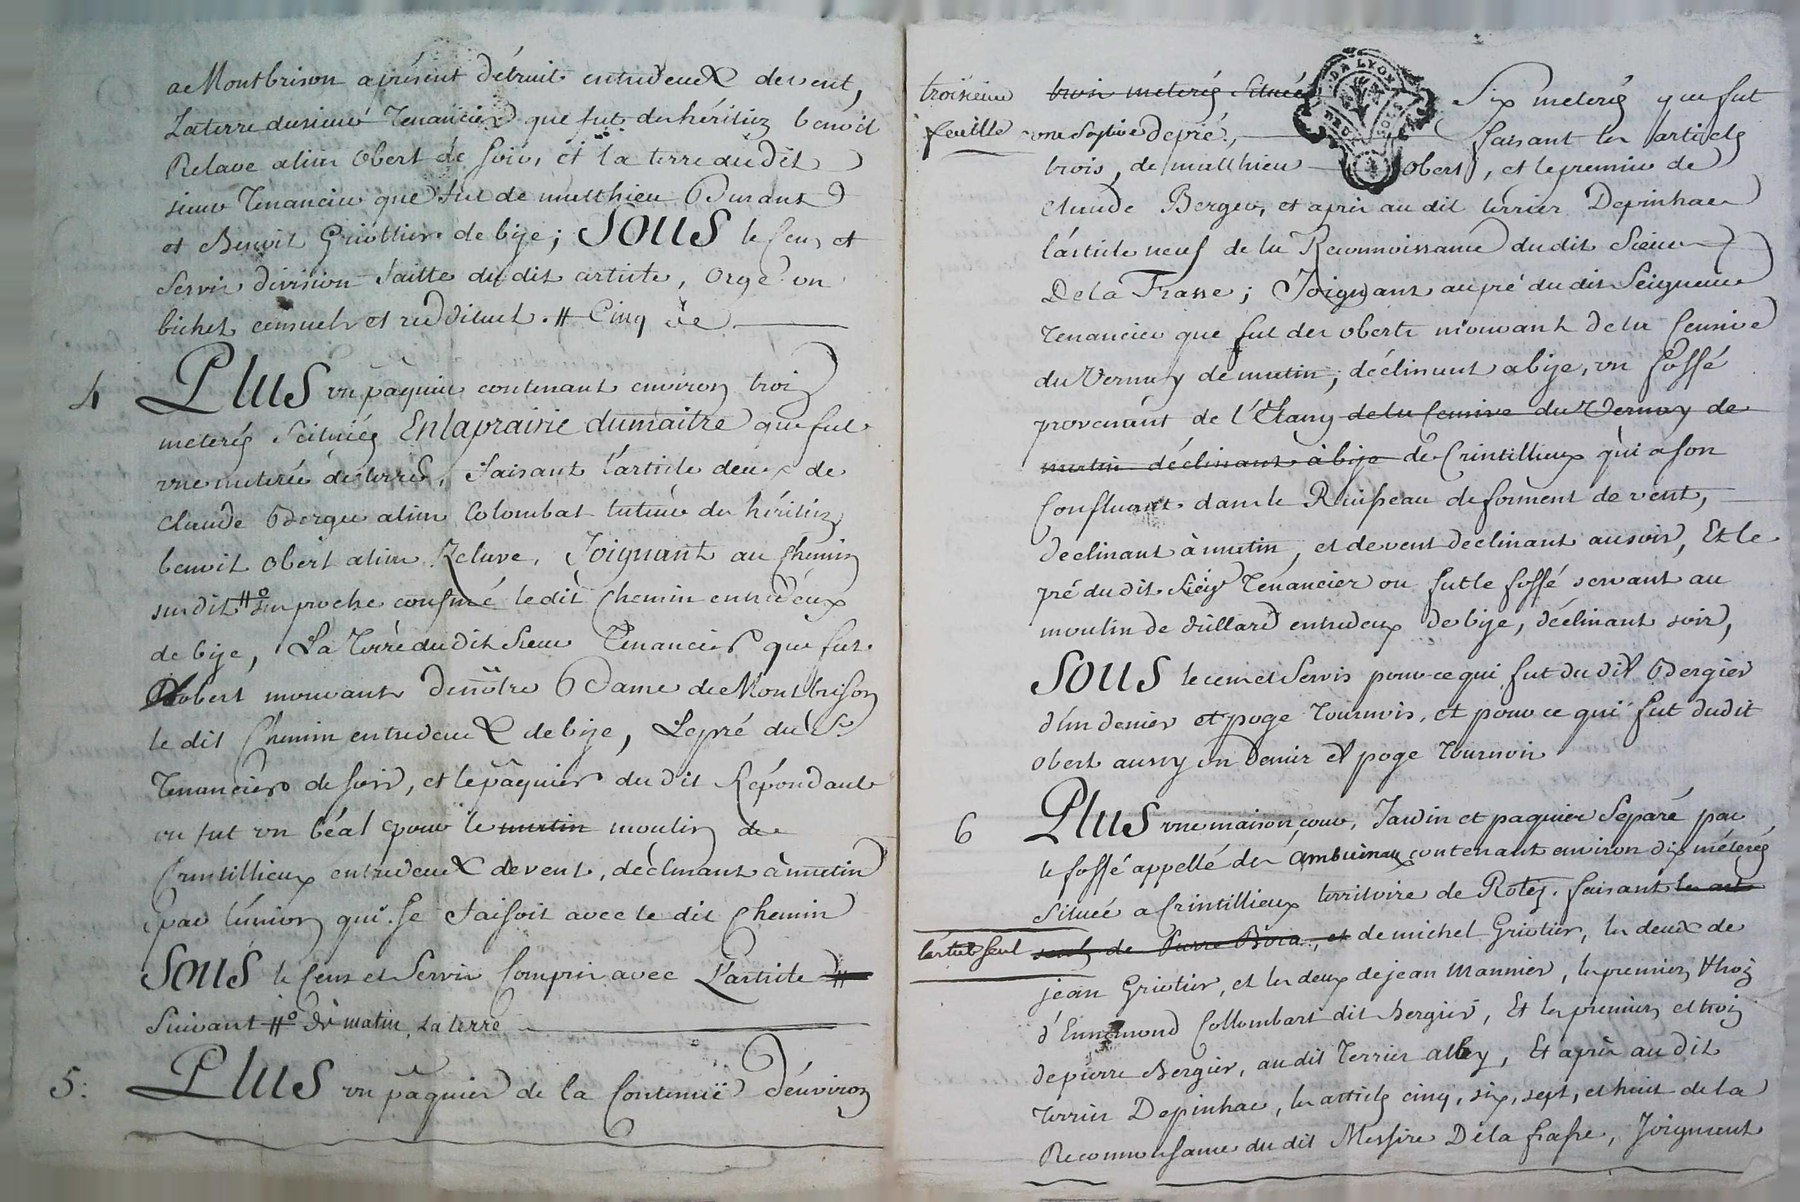 a Montbrison aprésent détruit entredeux de vent,
La terre du sieur Tenancier que fut des héritiers benoit
Relave alias Obert de soir, et la terre du dit
sieur Tenancier que fut de matthieu Durant
et Benoit Griottier de bise; SOUS le Cens et
Servis division faitte du dit article, orge un
bichet censuel et reddituel. # Cinq de
4 PLUS un pâquier contenant environ trois
meterés Scituées En la prairie du maitre que fut
une meterée de terre, faisant l'article deux de
Claude Berger alias Colombat tuteur des héritiers
benoit Obert alias Relave, Joignant au Chemin
susdit # sur proche confiné le dit Chemin entredeux
de bise, La Terre du dit sieur Tenancier que fut
obert mouvant de nôtre Dame de Montbrison
le dit Chemin entredeux de bise, Le pré du Sr
Tenancier de soir, et le pâquier du dit Répondant
ou fut un béal pour le matin moulin de
Crintillieux entredeux de vent, déclinant à matin
par l'union qui se faisoit avec le dit Chemin
SOUS le Cens et Servis Compris avec L'article #
Suivant # de matin La terre
5: PLUS un pâquier de la Contenüe d'environ
troisieme
feuille
trois meterés Scituées
DE LYON
DEUX SOLS
Six meterés que fut
une Septive de pré, faisant les articles
trois, de matthieu Obert, et le premier de
Claude Berger, et après au dit terrier Depinhac
l'article neuf de la Reconnoissance du dit Sieur
De la Frasse; Joignant au pré du dit Seigneur
Tenancier que fut des oberts mouvant de la Censive
du Vernay de matin, déclinant a bise, un fossé
provenant de l'Etang de la Censive du Vernay de
matin déclinant à bise de Crintillieux qui a son
Confluant dans le Ruisseau de forment de vent,
declinant à matin, et de vent declinant au soir, Et le
pré du dit Sieur Tenancier ou fut le fossé servant au
moulin de Villard entredeux de bise, déclinant soir,
SOUS le cens et Servis pour ce qui fut du dit Bergier
d'un denier et poge Tournois, et pour ce qui fut du dit
Obert aussy un denier et poge Tournois
6 PLUS une maison, cour, Jardin et paquier Separé par
le fossé appellé des contenant environ dix méterés
Située a Crintillieux territoire de Rotes. faisant les art
l'article seul
seul de Pierre Bora, et de michel Griotier, les deux de
jean Griotier, et les deux de jean Mannier, les premier, & trois
d'Ennemond Collombart dit Bergier, Et les premier, et trois
de pierre Bergier, au dit Terrier alby, Et après au dit
terrier Depinhac, les articles cinq, six, sept, et huit de la
Reconnoissance du dit Messire De la frasse, Joignant